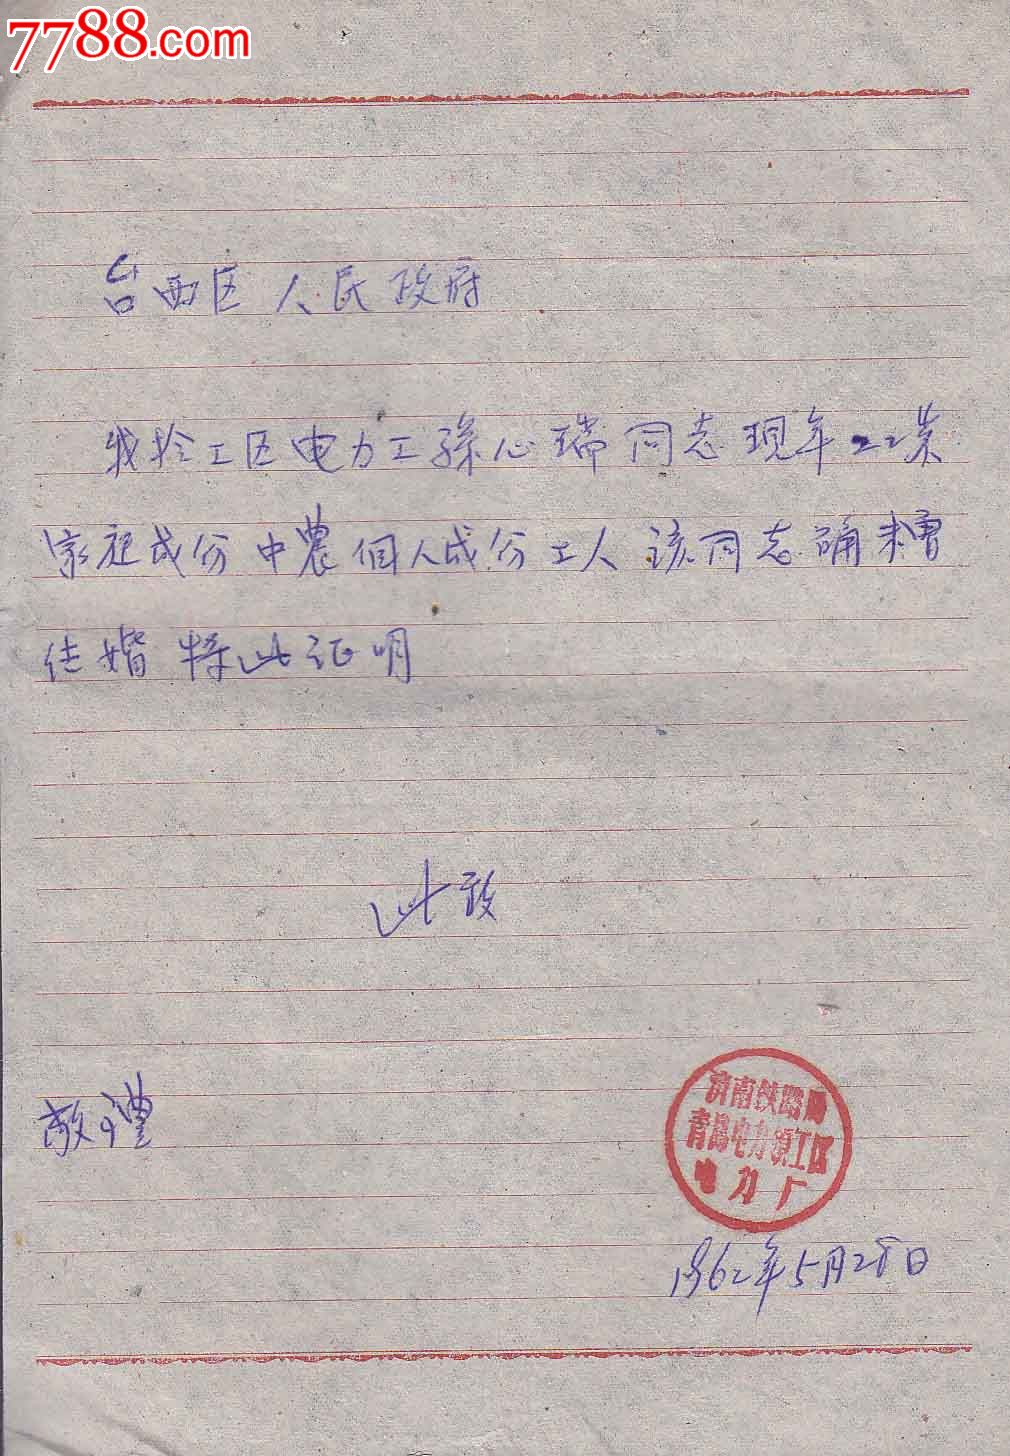 7788.com
台西区人民政府
我於工区电力工孫心瑞同志现年二二岁
家庭成份中農個人成份工人该同志确未曹
结婚特此证明
此致
敬禮
濟南铁路局
青島电力領工区
电力厂
1962年5月28日